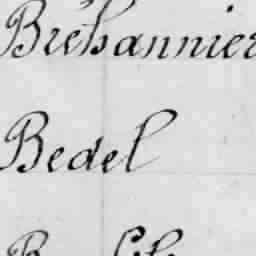 Bréhannier
Bedel